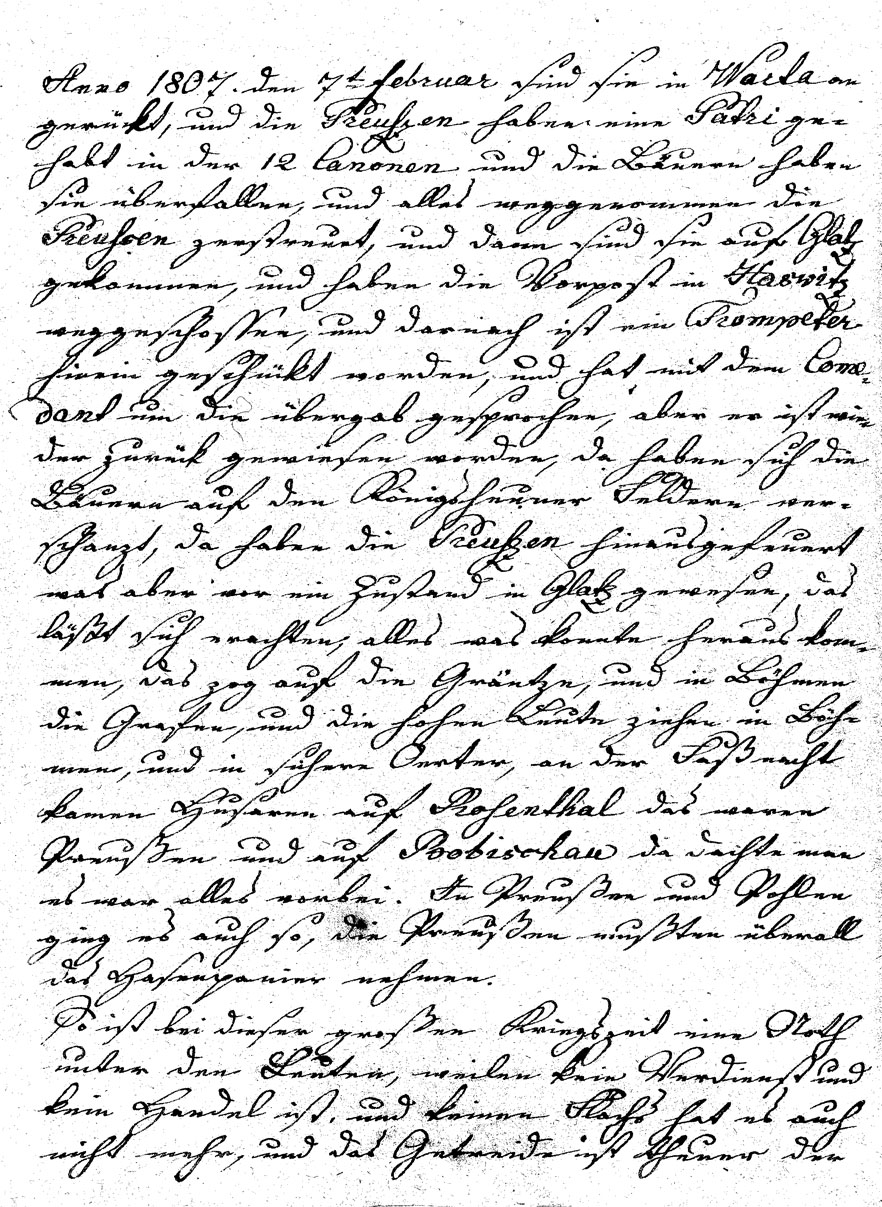 Anno 1807. den 7t februar sind sie in Warta an
gerückt, und die Preußen haben eine Patri ge-
habt in der 12 Canonen und die Bäuern haben
sie überfallen, und alles weggenommen die
Preußen zerstreuet, und dann sind sie auf Glatz
gekommen, und haben die Vorpost in Haswitz
weggeschossen, und darnach ist ein Trompeter
hinein geschückt worden, und hat mit dem Come-
dant um die übergab gesprochen, aber er ist wie-
der zurück gewiesen worden, da haben sich die
Bäuern auf den Königsheuner Feldern ver-
schanzt, da haben die Preußen hinausgefeuert
was aber vor ein Zustand in Glatz gewesen, das
läßt sich erachten, alles was konnte heraus kom-
men, das zog auf die Gräntze, und in Böhmen
die Grafen, und die hohen Leute ziehen in Böh-
men, und in sichere Oerter, an der Faßnacht
kamen Husaren auf Rosenthal das waren
Preußen und auf Boobischau da dachte man
es war alles vorbei. In Preußen und Pohlen
ging es auch so, die Preußen mußten überall
das Hasenpanier nehmen.
So ist bei dieser großen Kriegszeit eine Noth
unter den Leuten, weilen kein Verdienst und
kein Handel ist, und keinen Flachs hat es auch
nicht mehr, und das Getreide ist theuer der